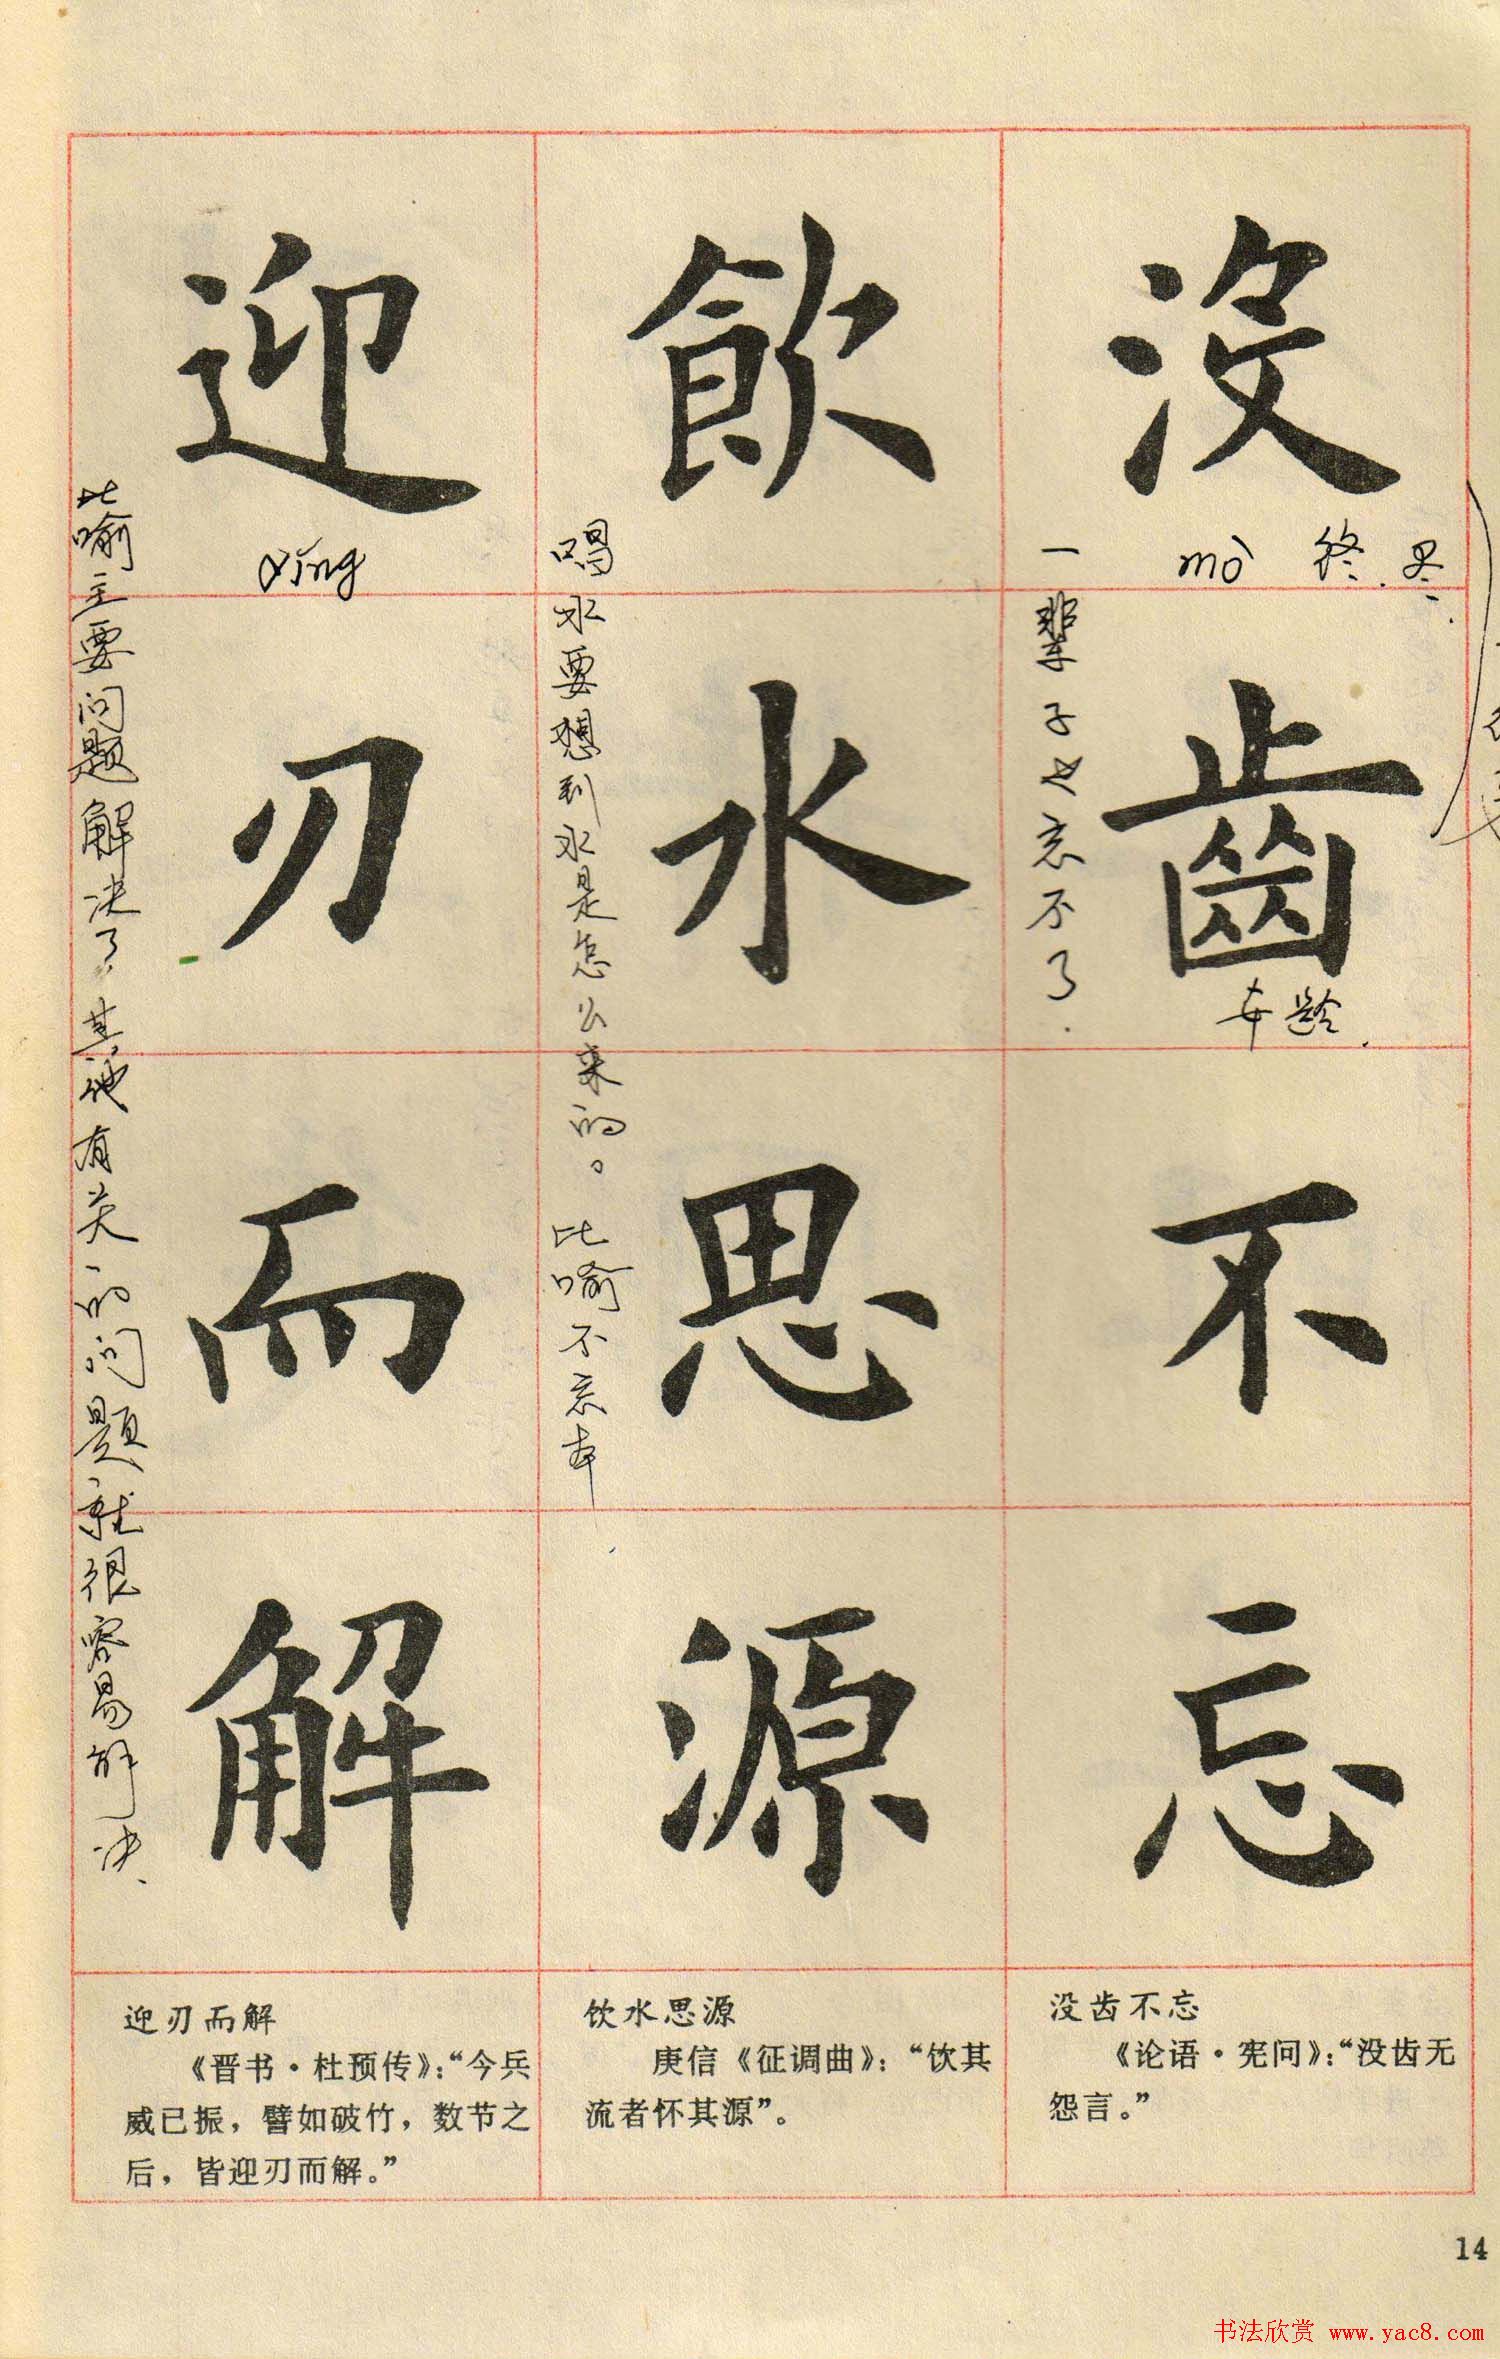 沒齒不忘
mò 终.尽.
一辈子也忘不了.
年龄.
飲水思源
喝水要想到水是怎么来的。比喻不忘本
迎刃而解
yíng
比喻主要问题解决了,其他有关的问题就很容易解决.
没齿不忘
《论语·宪问》：“没齿无
怨言。”
饮水思源
庾信《征调曲》：“饮其
流者怀其源”。
迎刃而解
《晋书·杜预传》：“今兵
威已振，譬如破竹，数节之
后，皆迎刃而解。”
14
书法欣赏 www.yac8.com